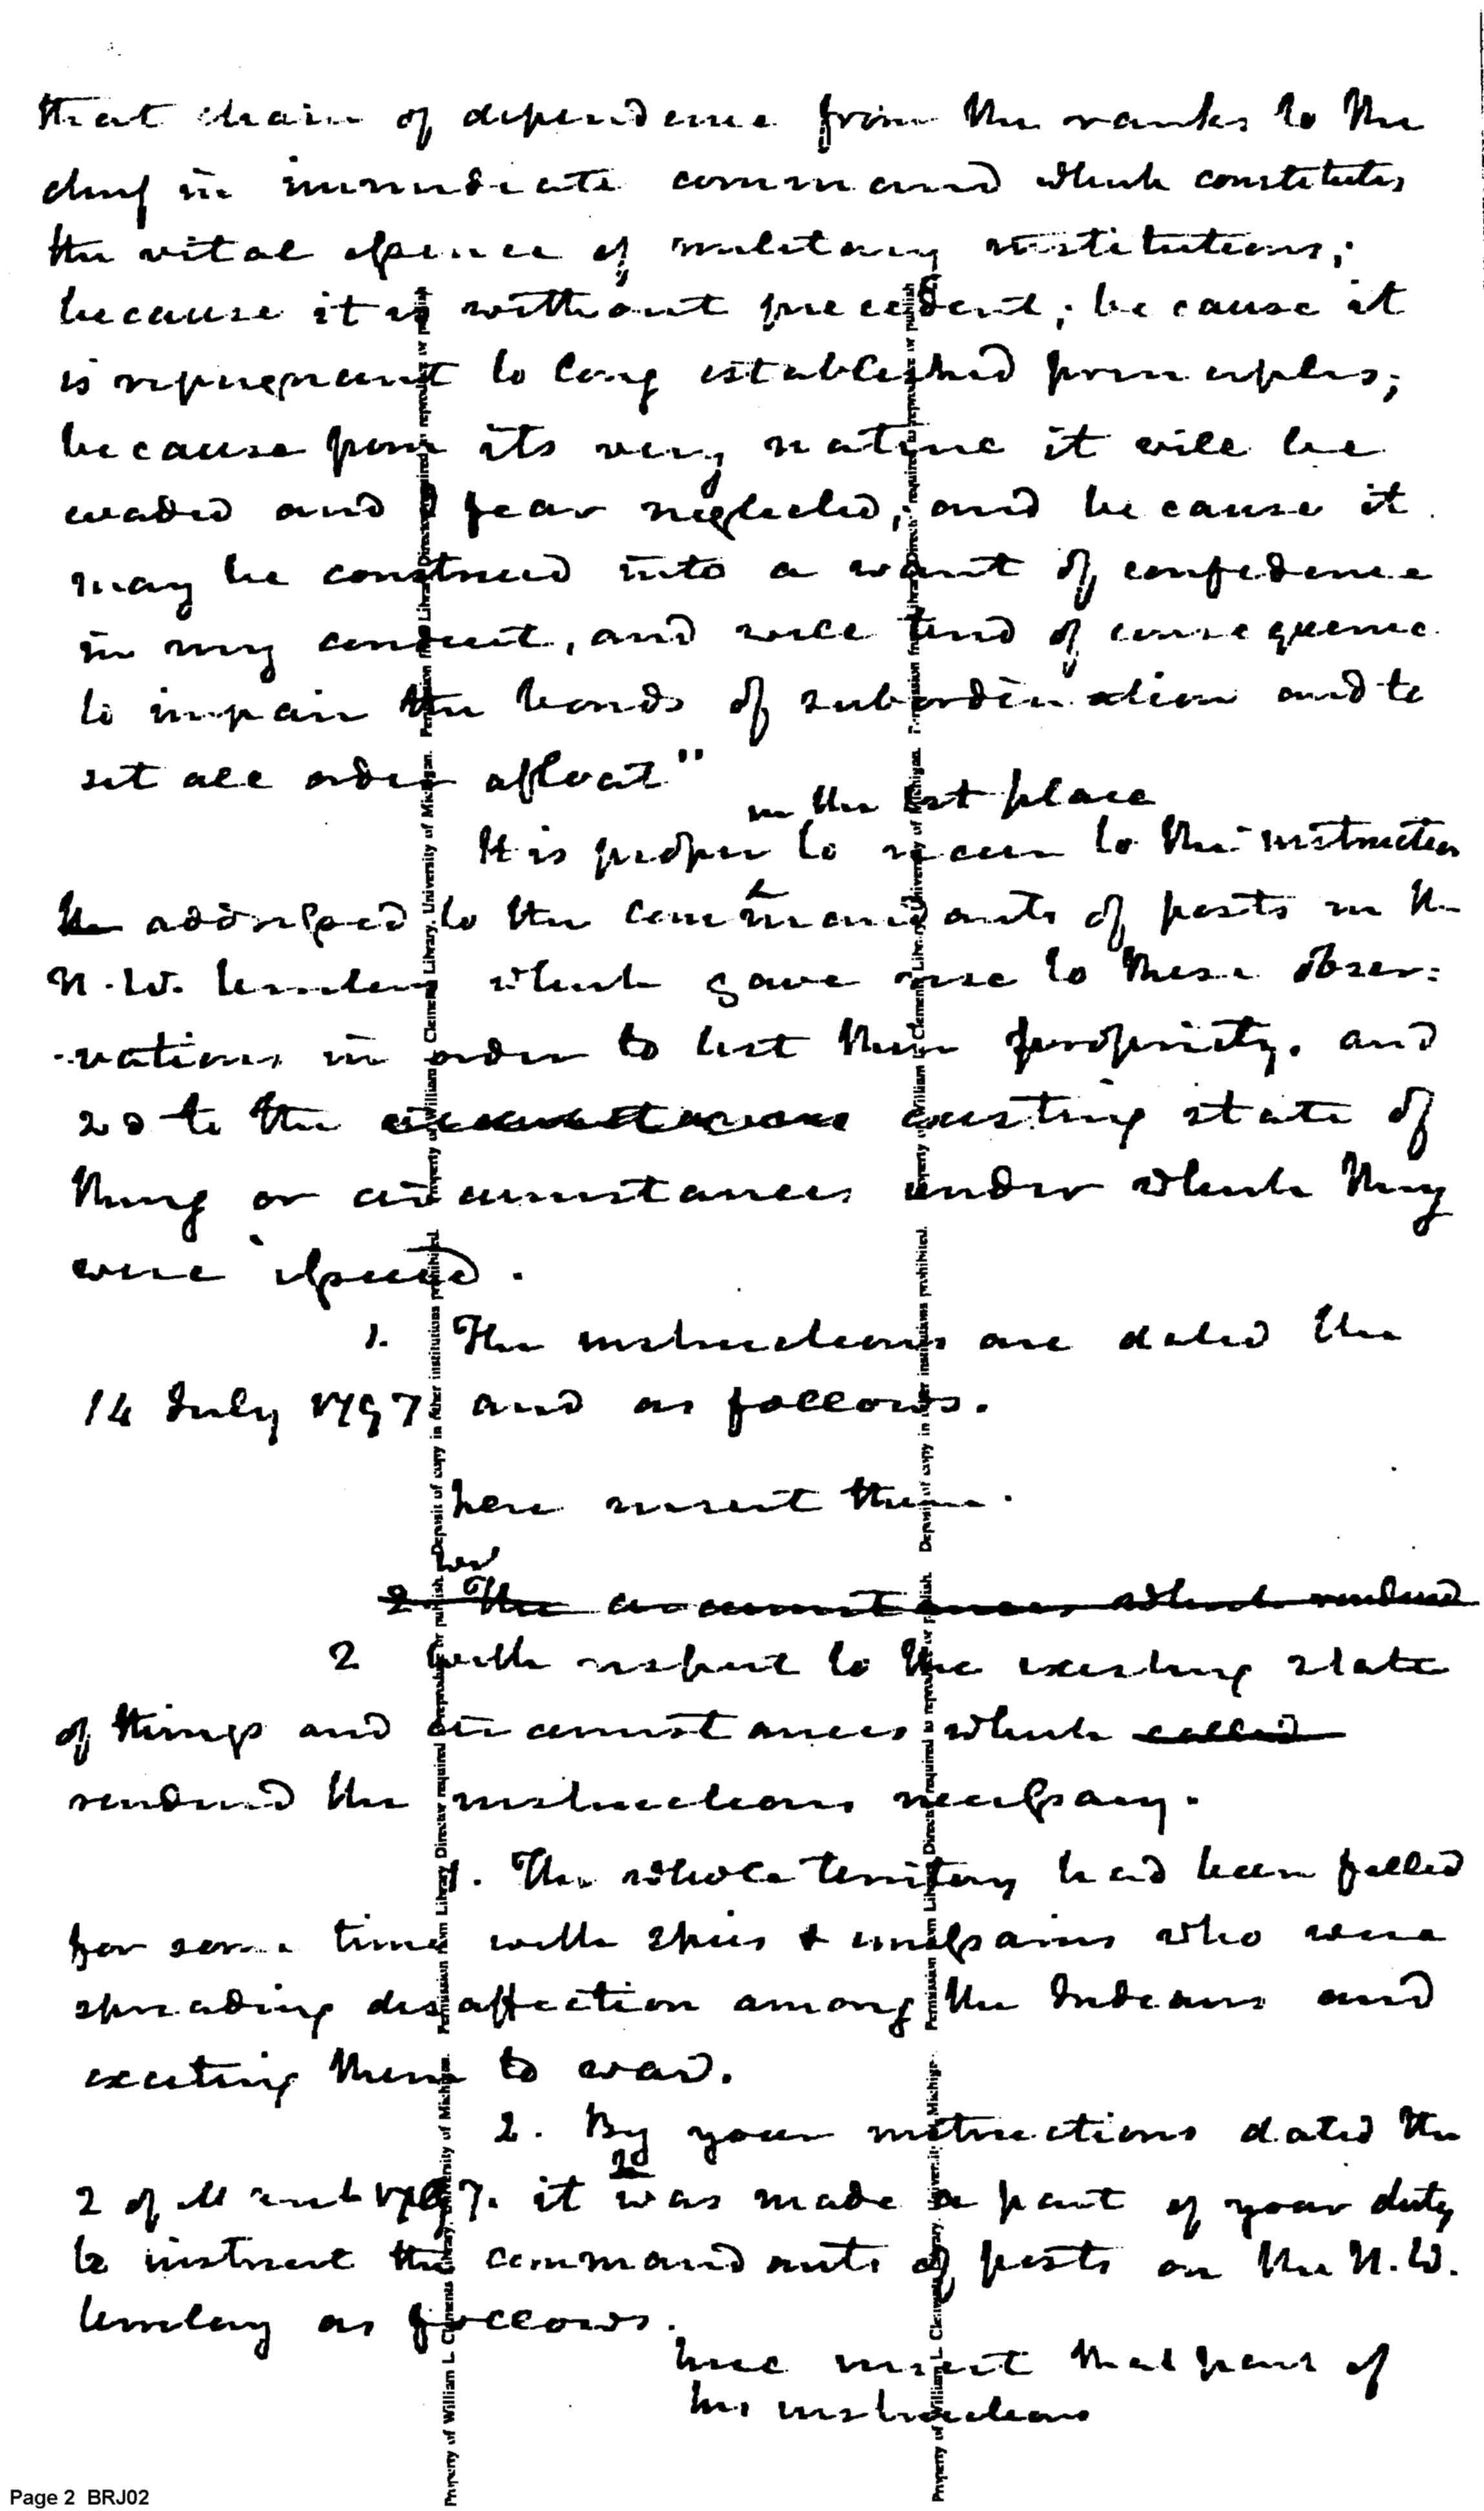 that chain of dependence from the ranks to the
chief in immediate command which constitutes
the vital essence of military institutions;
because it is without precedent; because it
is repugnant to long established principles;
because from its very nature it will be
evaded and I fear neglected; and because it
may be construed into a want of confidence
in my conduit, and will tend of consequence
to impair the bonds of subordination and to
set all order afloat"
in the 1st place
It is proper to recur to the instruction
the addressed to the commandants of posts in the
N.W. territory which gave rise to these obser=
-vations in order to test their propriety. and
2d to the circumstances existing state of
thing or circumstances under which they
were issued.
1. The instructions are dated the
14 July 1797 and as follows.
here insert them.
2. The circumstances which rendered
2 with respect to the existing state
of things and circumstances which called
rendered the instructions necessary.
1. The whole territory had been filled
for some time with spies & emissaries who were
spreading disaffection among the Indians and
exciting them to war.
2. By your instructions dated the
2 of March 1797. it was made a part of your duty
to instruct the commandants of posts on the N.W.
territory as follows.
here insert that part of
his instructions
Property of William L. Clements Library, University of Michigan. Permission from Library Director required to reproduce or publish. Deposit of copy in other institutions prohibited.
Property of William L. Clements Library, University of Michigan. Permission from Library Director required to reproduce or publish. Deposit of copy in other institutions prohibited.
Page 2 BRJ02